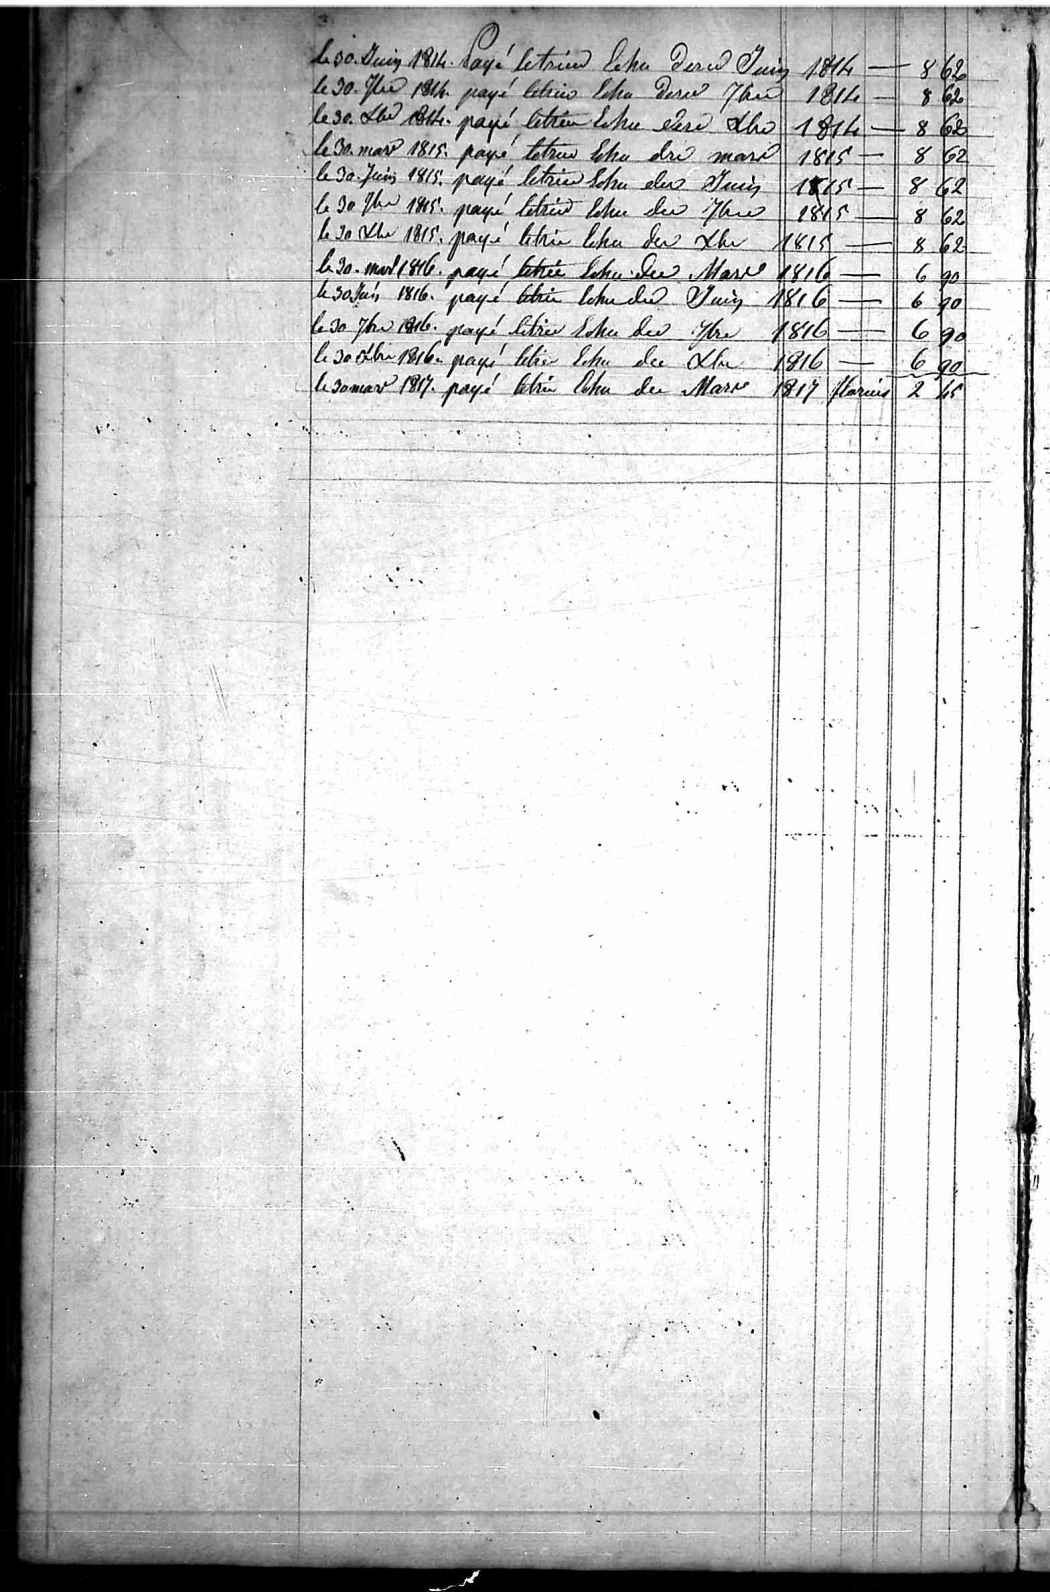 le 30. Juin 1814. Payé letrim Echu dece Juin 1814 — 8 62
le 30. 7bre 1814. payé letrim Echu dece 7bre 1814 — 8 62
le 30. Xbre 1814. payé letrim Echu dece Xbre 1814 — 8 62
le 30. mars 1815. payé letrim Echu dece mars 1815 — 8 62
le 30. Juin 1815. payé letrim Echu dece Juin 1815 — 8 62
le 30 7bre 1815. payé letrim Echu dece 7bre 1815 — 8 62
le 30 Xbre 1815. payé letrim Echu dece Xbre 1815 — 8 62
le 30. mars 1816. payé letrim Echu dece Mars 1816 — 6 90
le 30 Juin 1816. payé letrim Echu dece Juin 1816 — 6 90
le 30 7bre 1816. payé letrim Echu dece 7bre 1816 — 6 90
le 30 Xbre 1816. payé letrim Echu dece Xbre 1816 — 6 90
le 30 mars 1817. payé letrim Echu dece Mars 1817 florins 2 45